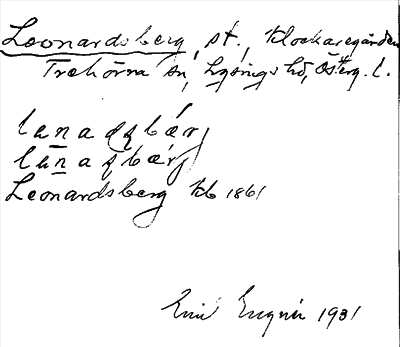 Leonardsberg, st., Klockaregården
Trehörna sn, Lysings hd, Österg. l.
lanaḍbärj
lanaḍbärj
Leonardsberg Kb 1861
Emil Engvér 1931